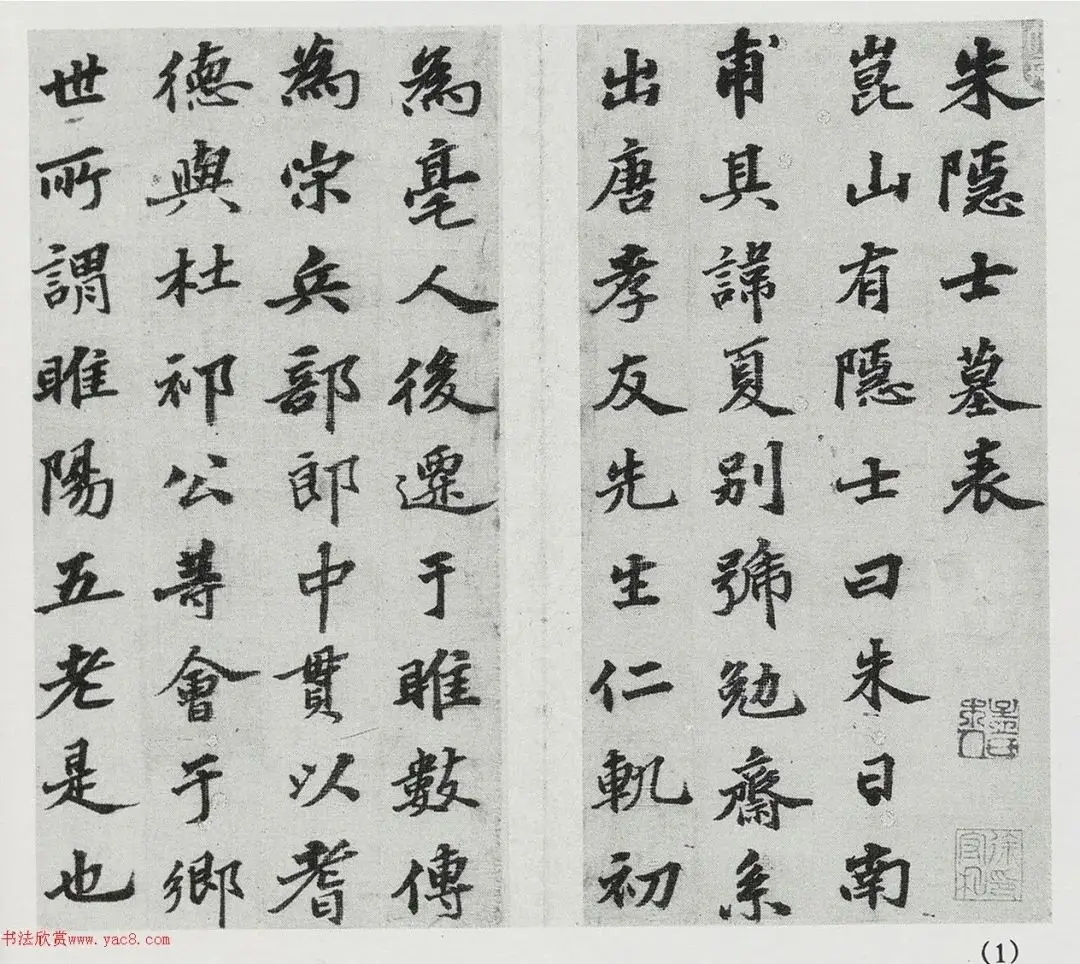 朱隱士墓表
崑山有隱士曰朱日南
甫其諱夏別號勉齋系
出唐孝友先生仁軌初
為亳人後遷于睢數傳
為宋兵部郎中貫以耆
德與杜祁公等會于鄉
世所謂睢陽五老是也
书法欣赏www.yac8.com
(1)